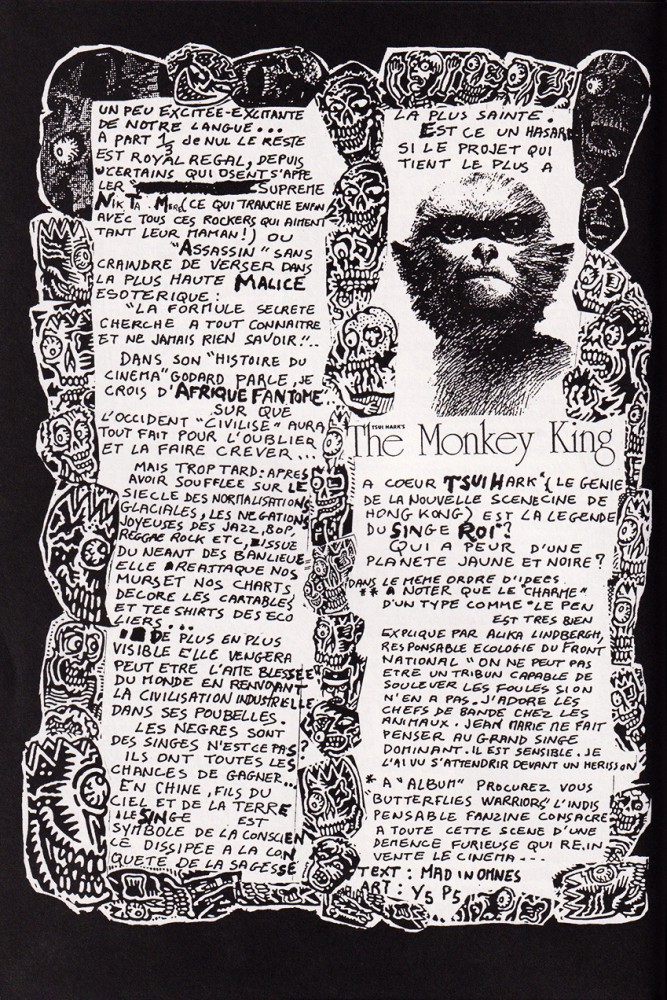 UN PEU EXCITÉE-EXCITANTE
DE NOTRE LANGUE...
A PART 1/3 de NUL LE RESTE
EST ROYAL REGAL, DEPUIS
CERTAINS QUI OSENT S'APPE
LER SUPREME
NIK TA. MERE (CE QUI TRANCHE ENFIN
AVEC TOUS CES ROCKERS QUI AIMENT
TANT LEUR MAMAN!) OU
"ASSASSIN" SANS
CRAINDRE DE VERSER DANS
LA PLUS HAUTE MALICE
ESOTERIQUE:
"LA FORMULE SECRETE
CHERCHE A TOUT CONNAITRE
ET NE JAMAIS RIEN SAVOIR"..
DANS SON "HISTOIRE DU
CINEMA" GODARD PARLE, JE
CROIS D'AFRIQUE FANTOME..
SUR QUE
L'OCCIDENT "CIVILISE" AURA
TOUT FAIT POUR L'OUBLIER
ET LA FAIRE CREVER...
MAIS TROP TARD: APRES
AVOIR SOUFFLEE SUR LE
SIECLE DES NORMALISATIONS
GLACIALES, LES NEGATIONS
JOYEUSES DES JAZZ, BOP,
REGGAE ROCK ETC, ISSUE
DU NEANT DES BANLIEUE
ELLE REATTAQUE NOS
MURS ET NOS CHARTS,
DECORE LES CARTABLES
ET TEE SHIRTS DES ECO
LIERS...
DE PLUS EN PLUS
VISIBLE ELLE VENGERA
PEUT ETRE L'AME BLESSEE
DU MONDE EN RENVOYANT
LA CIVILISATION INDUSTRIELLE
DANS SES POUBELLES.
LES NEGRES SONT
DES SINGES N'EST CE PAS?
ILS ONT TOUTES LES
CHANCES DE GAGNER..
EN CHINE, FILS DU
CIEL ET DE LA TERRE
LE SINGE EST
SYMBOLE DE LA CONSCIEN
CE DISSIPEE A LA CON
QUETE DE LA SAGESSE
LA PLUS SAINTE.
EST CE UN HASARD
SI LE PROJET QUI
TIENT LE PLUS A
TSUI HARK'S
The Monkey King
A COEUR TSUI HARK* (LE GENIE
DE LA NOUVELLE SCENE CINE DE
HONG KONG) EST LA LEGENDE
DU SINGE ROI*?
QUI A PEUR D'UNE
PLANETE JAUNE ET NOIRE?
DANS LE MEME ORDRE D'IDEES
** A NOTER QUE LE "CHARME"
D'UN TYPE COMME "LE PEN
EST TRES BIEN
EXPLIQUE PAR ALIKA LINDBERGH,
RESPONSABLE ECOLOGIE DU FRONT
NATIONAL "ON NE PEUT PAS
ETRE UN TRIBUN CAPABLE DE
SOULEVER LES FOULES SI ON
N'EN A PAS. J'ADORE LES
CHEFS DE BANDE CHEZ LES
ANIMAUX. JEAN MARIE ME FAIT
PENSER AU GRAND SINGE
DOMINANT. IL EST SENSIBLE. JE
L'AI VU S'ATTENDRIR DEVANT UN HERISSON
* A "ALBUM" PROCUREZ VOUS
BUTTERFLIES WARRIORS, L'INDIS
PENSABLE FANZINE CONSACRE
A TOUTE CETTE SCENE D'UNE
DEMENCE FURIEUSE QUI RE.IN
VENTE LE CINEMA...
TEXT: MAD IN OMNES
ART: Y5 P5